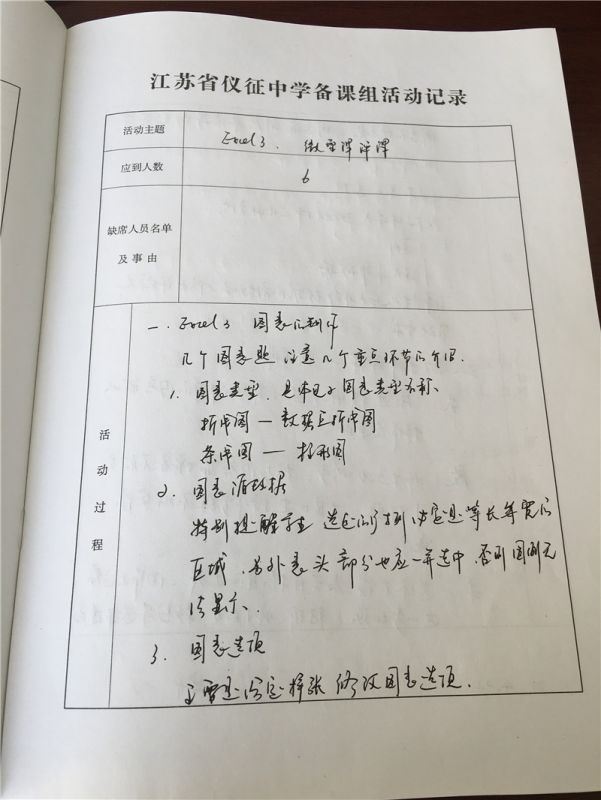 江苏省仪征中学备课组活动记录
活动主题
Excel 3. 微型课评课
应到人数
6
缺席人员名单
及事由
活动过程
一. Excel 3 图表的制作
几个图表题 注意几个重点环节的介绍.
1. 图表类型. 具体见于图表类型名称
折线图 — 数据点折线图
条形图 — 柱形图
2. 图表源数据
特别提醒学生 选定的行列 必定是等长等宽的
区域. 另外表头部分也应一并选中, 否则图例无
法显示.
3. 图表选项
主要是给定样张 修改图表选项.